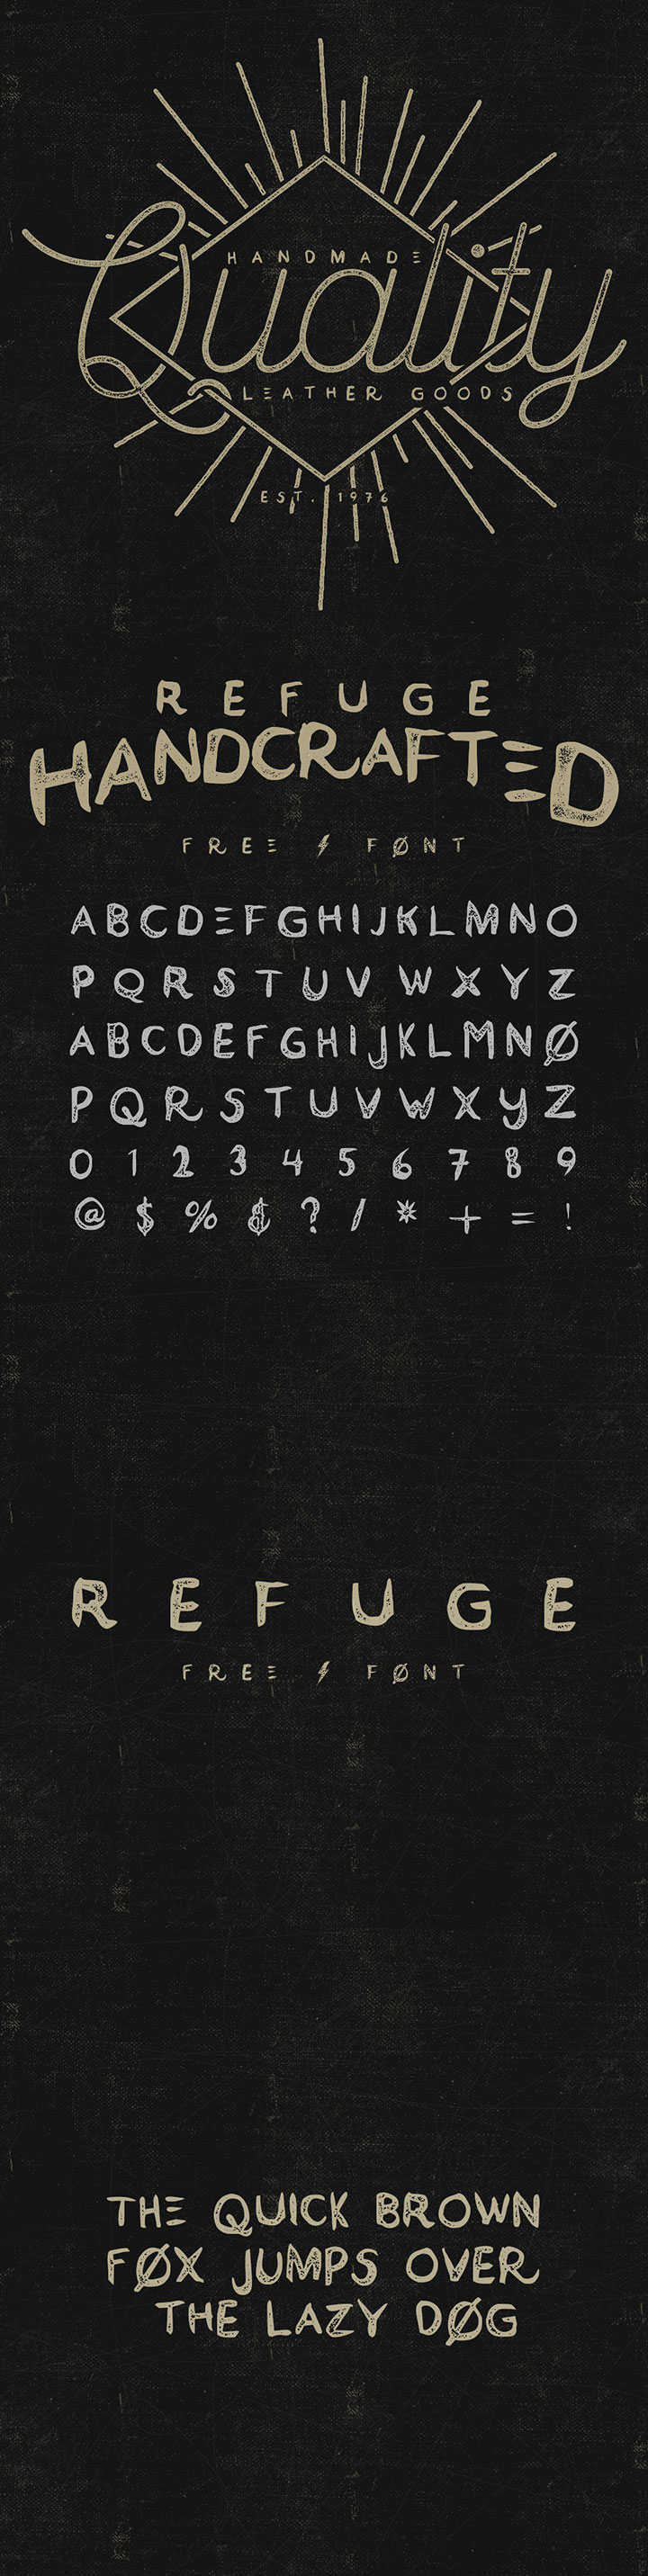 HANDMADE
Quality
LEATHER GOODS
EST. 1976
REFUGE
HANDCRAFTED
FREE FØNT
ABCDEFGHIJKLMNO
PQRSTUVWXYZ
ABCDEFGHIJKLMNØ
PQRSTUVWXYZ
0 1 2 3 4 5 6 7 8 9
@ $ % & ? / * + = !
REFUGE
FREE FØNT
THE QUICK BROWN
FØX JUMPS OVER
THE LAZY DØG